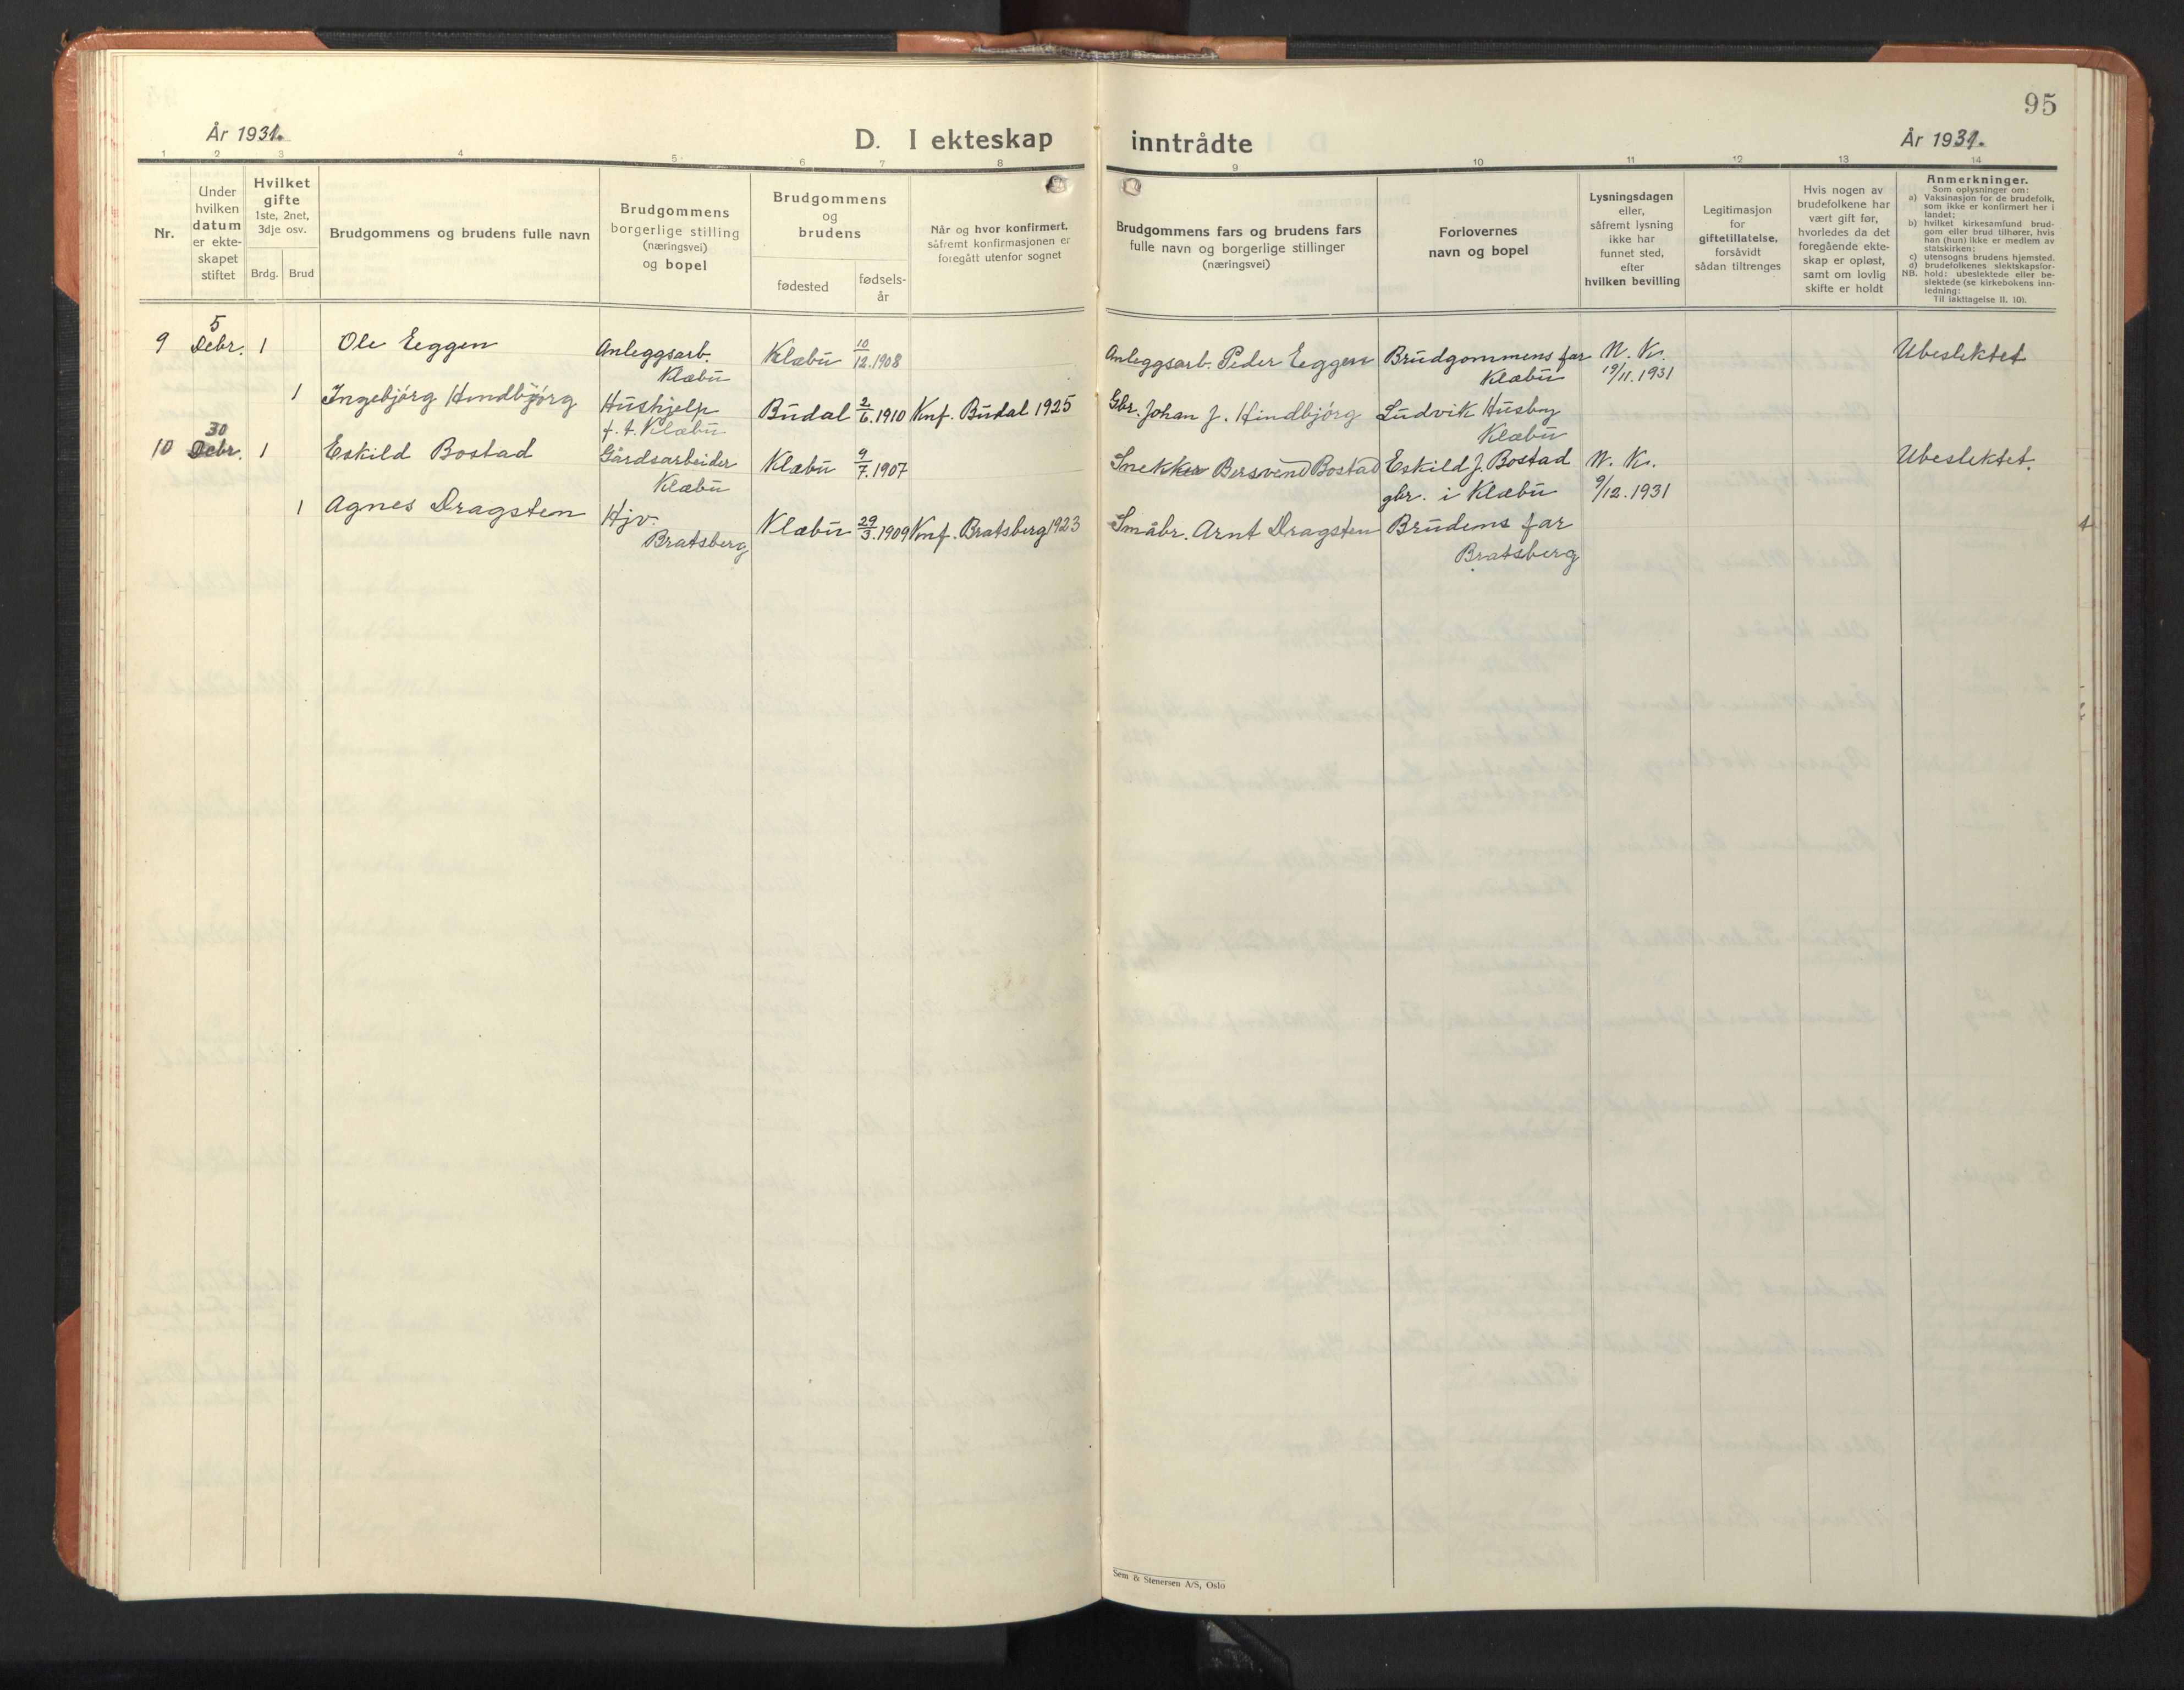 95
År 1931.
D. I ekteskap inntrådte
År 1931.
1 2 3 4 5 6 7 8 9 10 11 12 13 14
Nr.
Under
hvilken
datum
er ekte-
skapet
stiftet
Hvilket
gifte
1ste, 2net,
3dje osv.
Brdg. Brud
Brudgommens og brudens fulle navn
Brudgommens
borgerlige stilling
(næringsvei)
og bopel
Brudgommens
og
brudens
fødested
fødsels-
år
Når og hvor konfirmert,
såfremt konfirmasjonen er
foregått utenfor sognet
Brudgommens fars og brudens fars
fulle navn og borgerlige stillinger
(næringsvei)
Forlovernes
navn og bopel
Lysningsdagen
eller,
såfremt lysning
ikke har
funnet sted,
efter
hvilken bevilling
Legitimasjon
for
giftetillatelse,
forsåvidt
sådan tiltrenges
Hvis nogen av
brudefolkene har
vært gift før,
hvorledes da det
foregående ekte-
skap er opløst,
samt om lovlig
skifte er holdt
Anmerkninger.
Som oplysninger om:
a) Vaksinasjon for de brudefolk,
som ikke er konfirmert her i
landet;
b) hvilket kirkesamfund brud-
gom eller brud tilhører, hvis
han (hun) ikke er medlem av
statskirken;
c) utensogns brudens hjemsted.
d) brudefolkenes slektskapsfor-
NB. hold: ubeslektede eller be-
slektede (se kirkebokens inn-
ledning:
Til iakttagelse II. 10).
5
9 Debr. 1 Ole Eggen Anleggsarb. Klæbu 10/12.1908 Anleggsarb. Peder Eggen Brudgommens far N. Kr. Ubeslektet
Klæbu Klæbu 19/11.1931
1 Ingebjørg Hindbjørg Hushjelp Budal 2/6.1910 Knf. Budal 1925 Gbr. Johan J. Hindbjørg Ludvik Husby
f. t. Klæbu Klæbu
30
10 Debr. 1 Eskild Bostad Gårdsarbeider Klæbu 9/7.1907 Snekker Bersvend Bostad Eskild J. Bostad N. Kr. Ubeslektet.
Klæbu gbr. i Klæbu 9/12.1931
1 Agnes Dragsten Hjv. Klæbu 29/3.1909 Knf. Bratsberg 1923 Småbr. Arnt Dragsten Brudens far
Bratsberg Bratsberg
Sem & Stenersen A/S, Oslo